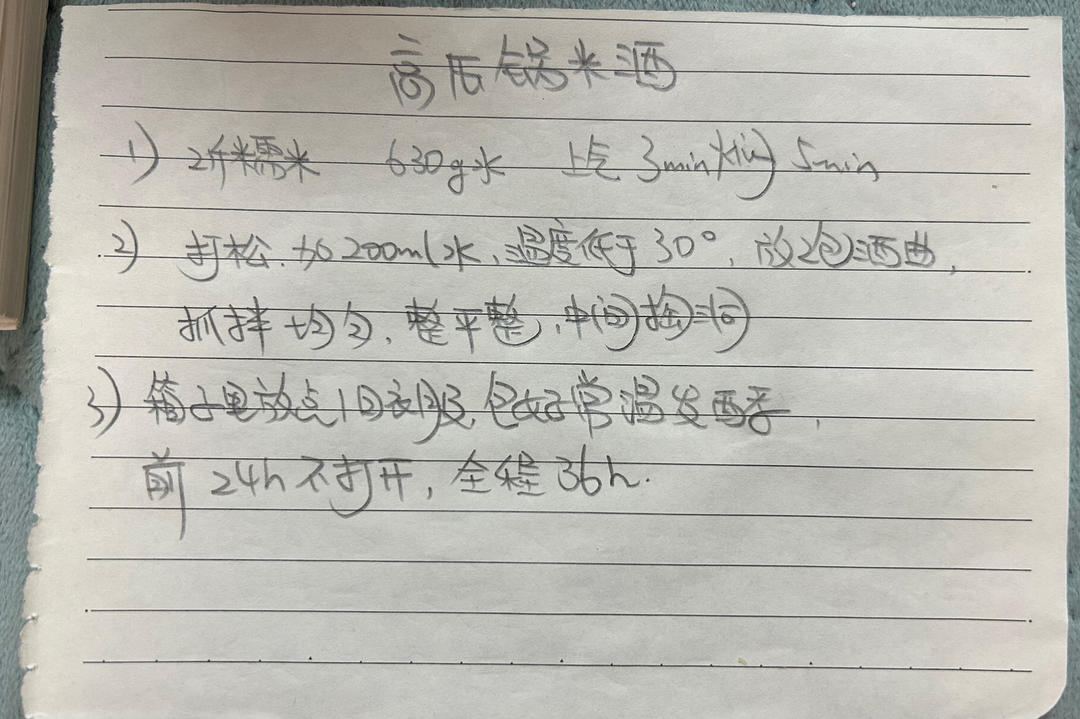 高压锅米酒
1) 2斤糯米 630g水 上气3min 5min
2) 打松.加200ml水、温度低于30°,放2包酒曲,
抓拌均匀,整平整,中间掏洞
3) 箱子里放点旧衣服,包好常温发酵,
前24h不打开,全程36h.